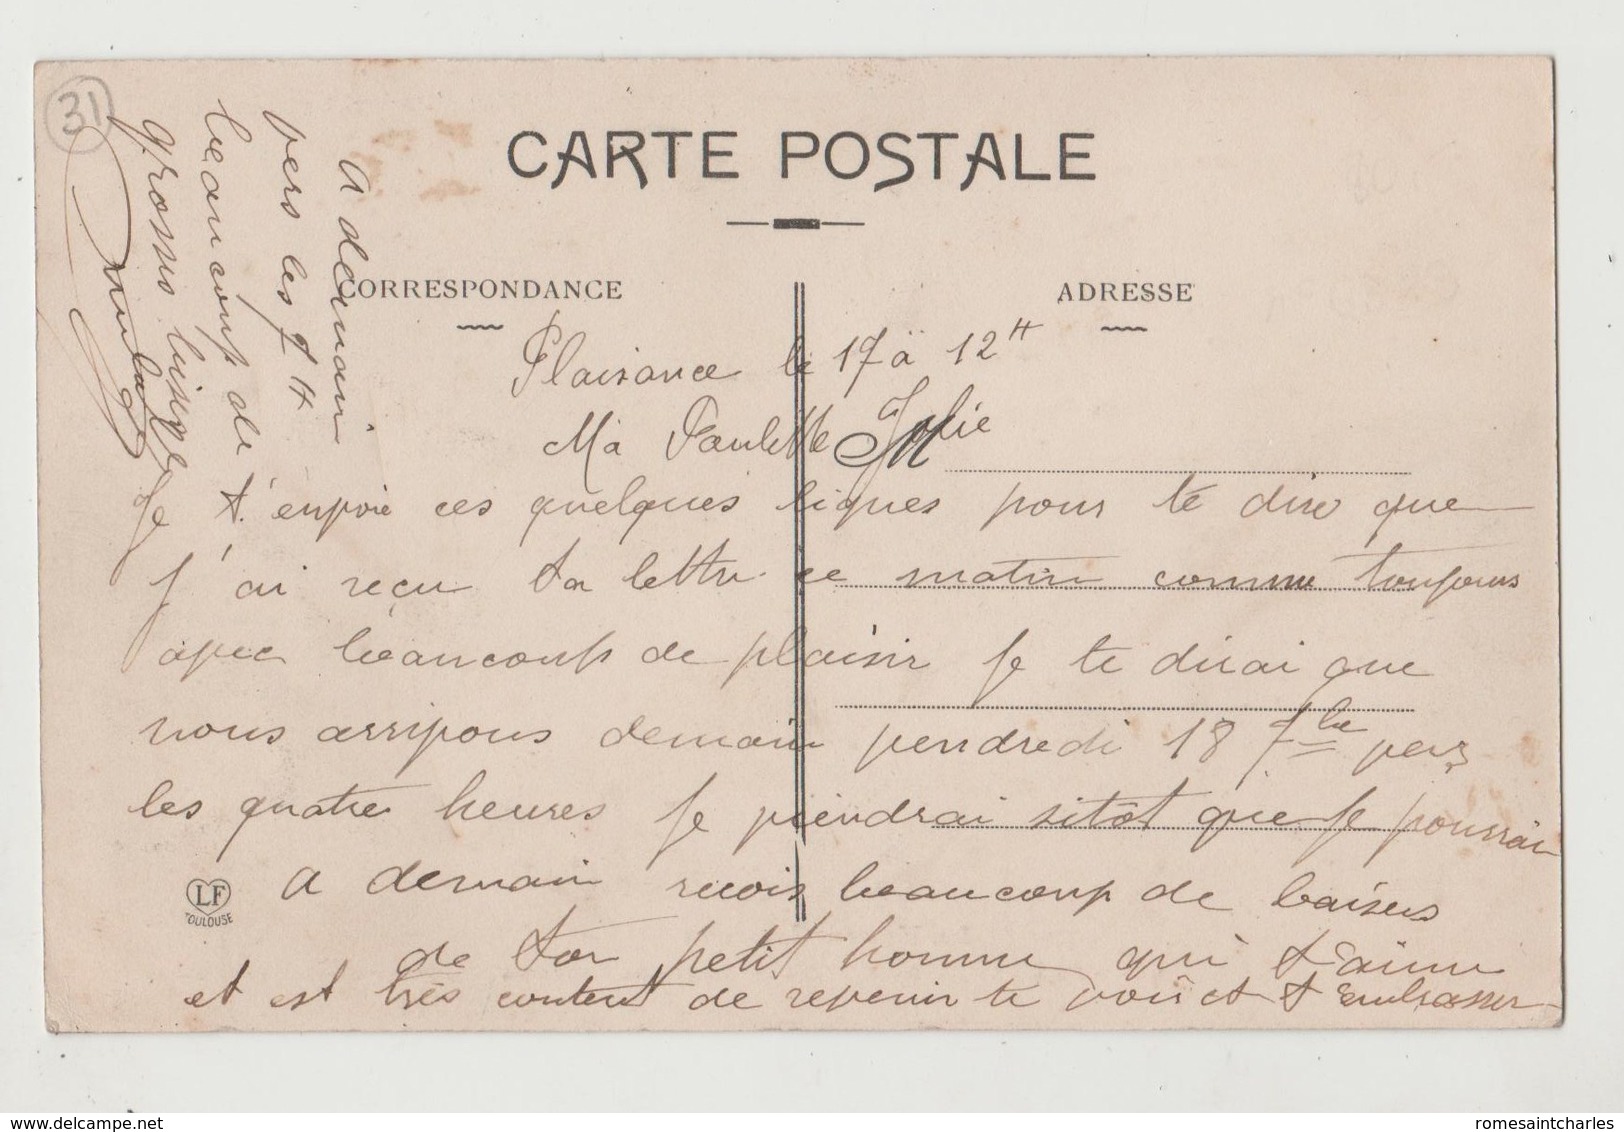 31
CARTE POSTALE
CORRESPONDANCE
ADRESSE
Plaisance le 17 à 12 H
Ma Paulette Jolie
Je t'envoie ces quelques lignes pour te dire que
j'ai reçu ta lettre ce matin comme toujours
avec beaucoup de plaisir Je te dirai que
nous arrivons demain vendredi 18 7bre vers
les quatre heures Je viendrai sitôt que je pourrai
A demain reçois beaucoup de baisers
de ton petit homme qui t'aime
et est très content de revenir te voir et t'Embrasser
LF
TOULOUSE
A demain
vers les 7 H
beaucoup de
grosses bises
romesaintcharles